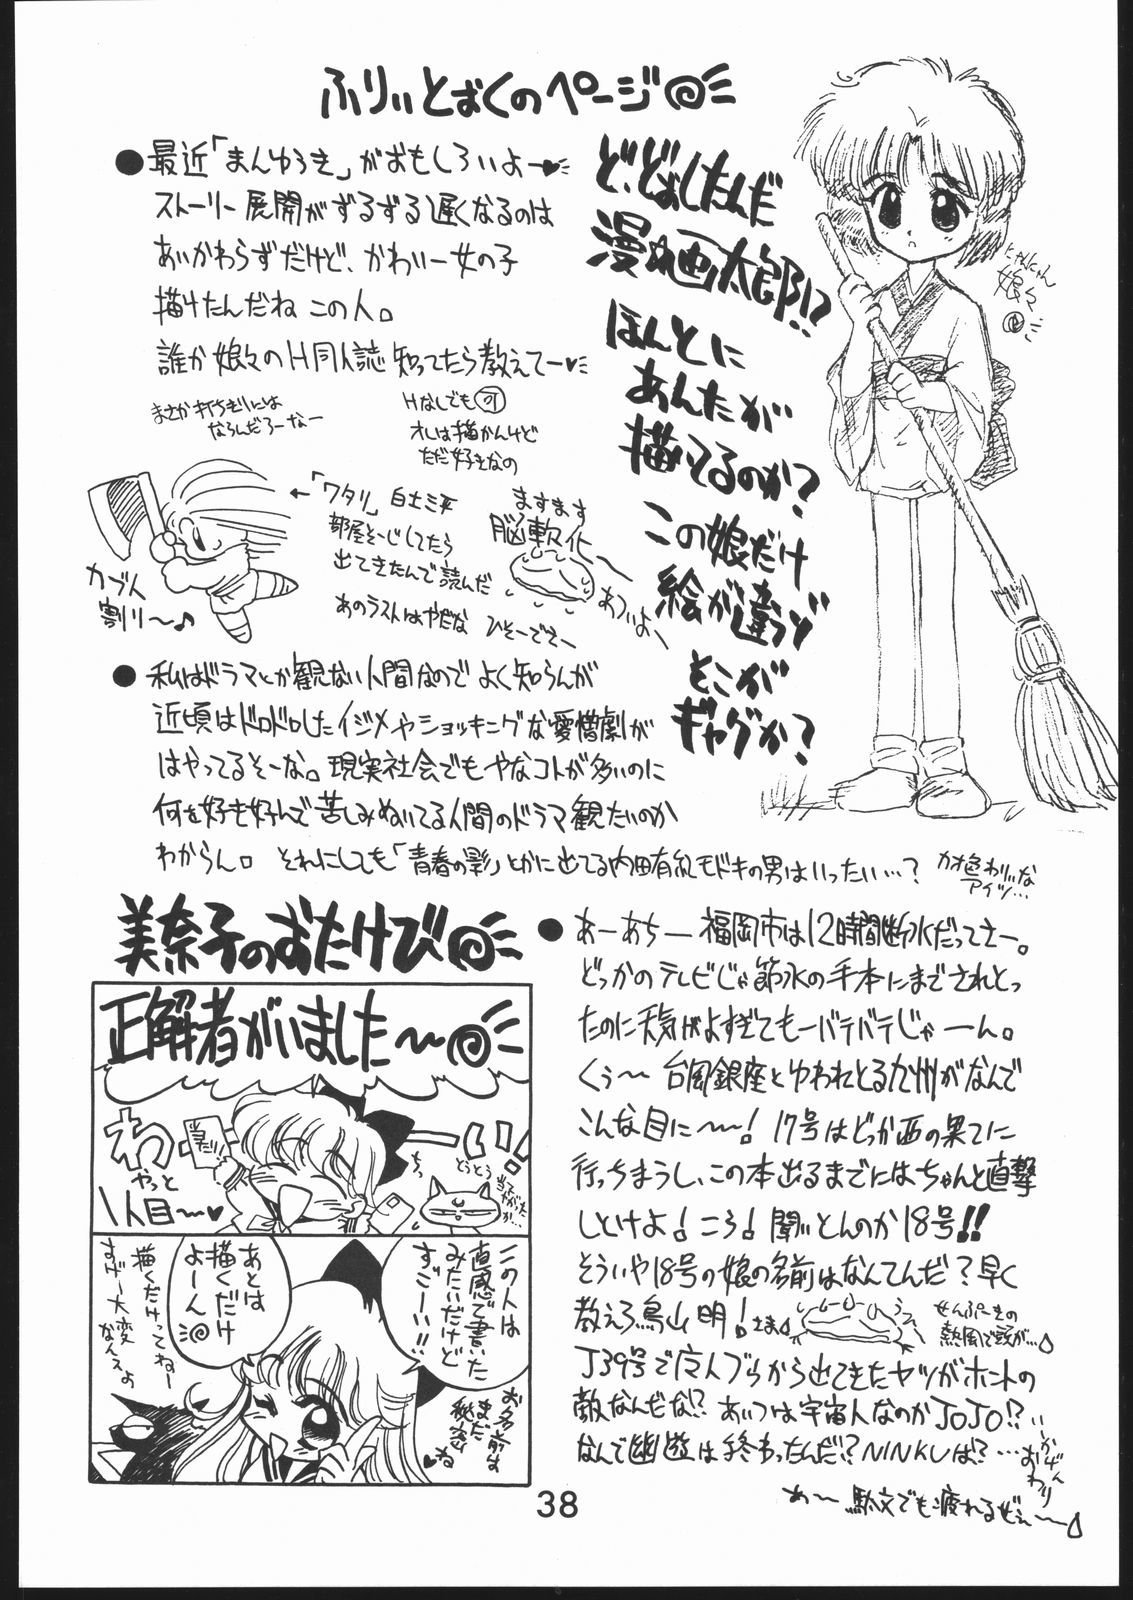 ふりぃとばくのページ
●最近「まんゆうき」がおもしろいよー♥
ストーリー展開がずるずる遅くなるのは
あいかわらずだけど、かわいー女の子
描けたんだね この人。
誰か娘々のH同人誌知ってたら教えてー♥
まさか打ちぎりには
ならんだろーなー
Hなしでも可
オレは描かんけど
ただ好きなの
ど、どぉしたんだ
漫☆画太郎!?
ほんとに
あんたが
描いてるのか?
この娘だけ
絵が違うぞ
どこが
ギャグか?
にゃんにゃん
娘々
←「ワタリ」白土三平
部屋そーじしてたら
出てきたんで読んだ
あのラストはやだな ひそーでさー
カブト
割り〜♪
ますます
脳軟化〜
あついよ〜
●私はドラマとか観ない人間なのでよく知らんが
近頃はドロドロしたイジメやショッキングな愛憎劇が
はやってるそーな。現実社会でもやなコトが多いのに
何を好き好んで苦しみぬいてる人間のドラマ観たいのか
わからん。それにしても「青春の影」とかに出てる内田有紀モドキの男はいったい…?
カオ色わりぃな
アイツ…
美奈子のおたけび
正解者がいました〜
わーい!
やっと
1人目〜♥
とうとう
当てやがった…
この人は
直感で書いた
みたいだけど
すごーい!!
お名前は
まだ
秘密
♥ね
あとは
描くだけ
よーん
描くだけってねー
すげー大変
なんスよ
●あーあちー 福岡市は12時間断水だってさー。
どっかのテレビじゃ節水の手本にまでされとっ
たのに天気がよすぎてもーバテバテじゃーん。
くぅ〜 台風銀座とゆわれとる九州がなんで
こんな目に〜〜! 17号はどっか西の果てに
行っちまうし、この本出るまでにはちゃんと直撃
しとけよ!ころ!聞いとんのか18号!!
そういや18号の娘の名前はなんてんだ?早く
教えろ鳥山明!さま
せんぷーきの
熱風で頭が…
J39号で広人ブゥから出てきたヤツがホントの
敵なんだな!? あいつは宇宙人なのかJOJO!?
なんで幽遊は終わったんだ!?NINKUは?…
いかげん
おわり
あ〜 駄文でも疲れるぜぇ〜
38